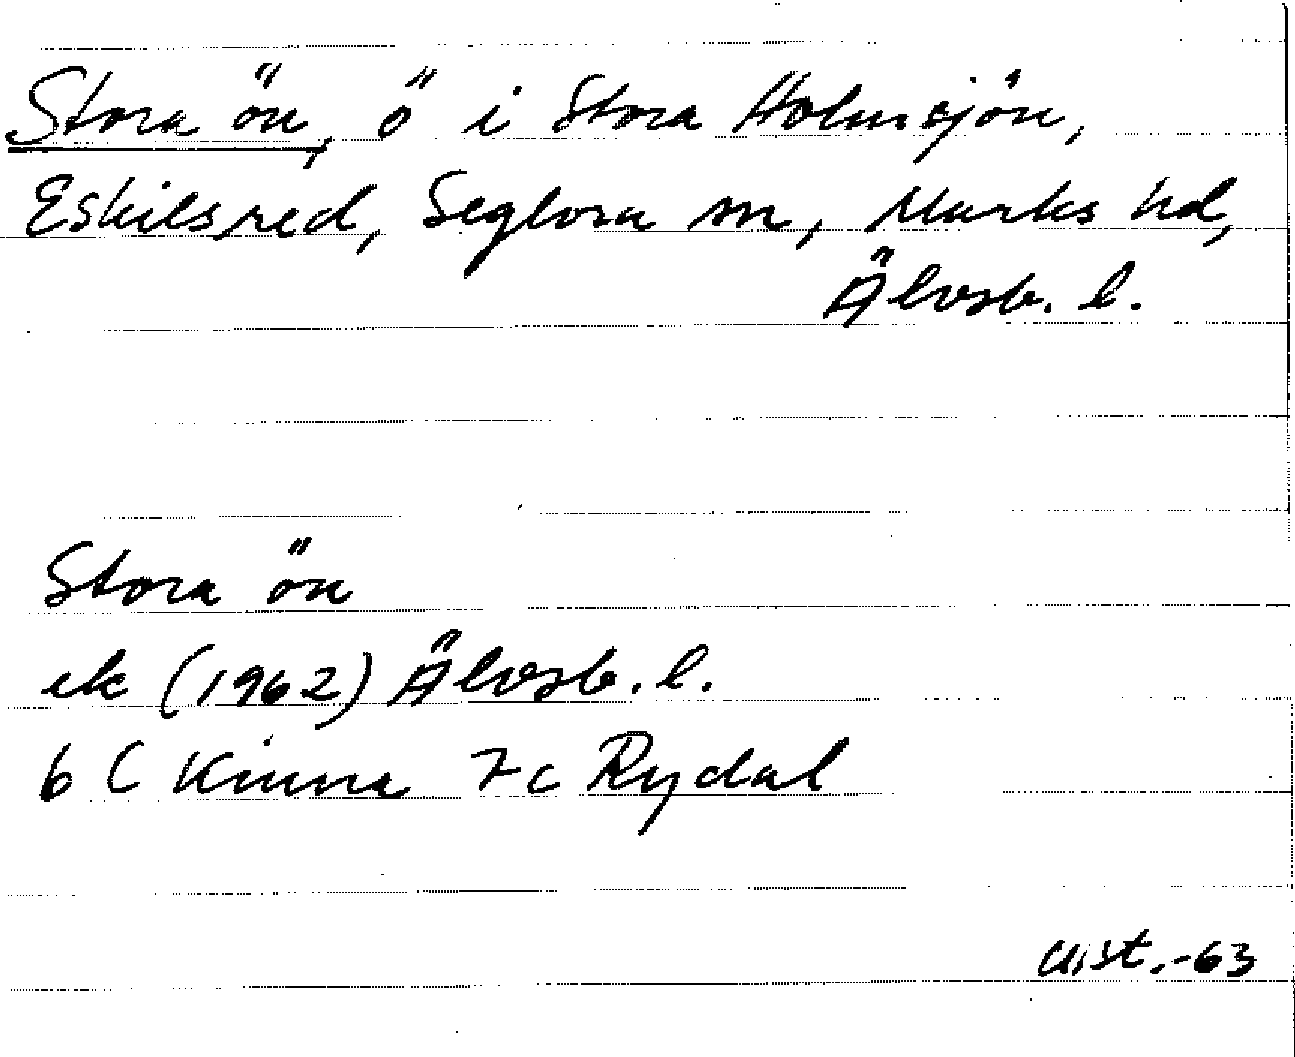 Stora ön, ö i Stora Hålmsjön,
Eskilsred, Seglora sn, Marks hd,
Älvsb. l.
Stora ön
ek (1962) Älvsb. l.
6 C Kinna 7c Rydal
-63